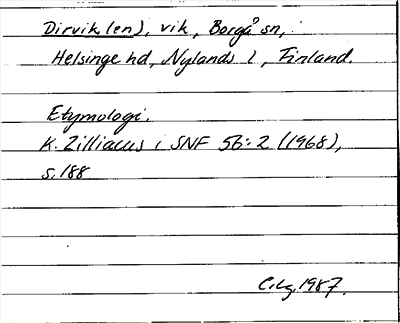 Dirvik (en), vik, Borgå sn,
Helsinge hd, Nylands l, Finland.
Etymologi.
K. Zilliacus i SNF 56:2 (1968),
s. 188
1987.